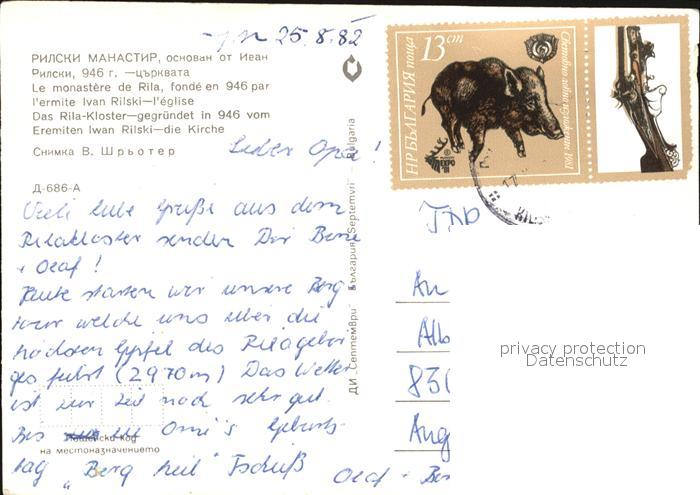 25.8.82
РИЛСКИ МАНАСТИР, основан от Иван
Рилски, 946 г. —църквата
Le monastère de Rila, fondé en 946 par
l'ermite Ivan Rilski—l'église
Das Rila-Kloster—gegründet in 946 vom
Eremiten Iwan Rilski—die Kirche
Снимка В. Шрьотер
Д-686-А
Lieber Opa!
Viele liebe Grüße aus dem
Rilakloster senden Dir
+ Olaf!
Heute starten wir unsere Berg
tour welche uns über die
höchsten Gipfel des Rilagebir
ges führt (2970m) Das Wetter
ist zur Zeit noch sehr gut.
Bis Omi's Geburts-
tag "Berg heil" Tschüß
Olaf +
на местоназначението
ДИ „Септември" България „Septemvri" Bulgaria
НР БЪЛГАРИЯ поща
13 ст
Световно ловно изложение 1981
EXPO
17
An
Alb
830
Aug
privacy protection
Datenschutz